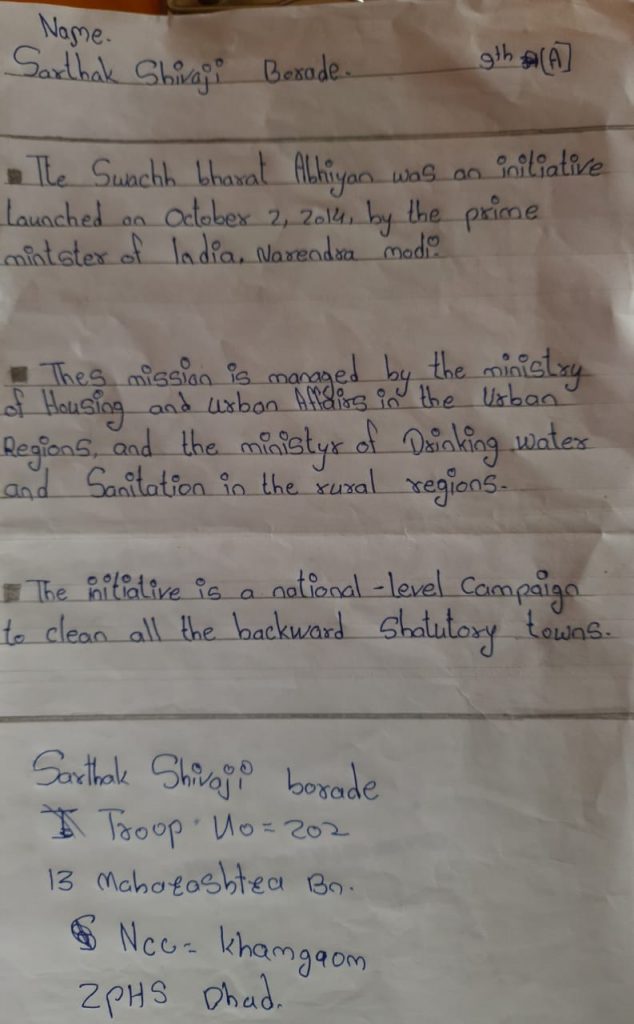 Name.
Sarthak Shivaji Borade. 9th [A]
The Swachh bharat Abhiyan was an initiative
Launched on October 2, 2014, by the prime
mintster of India, Narendra modi.
Thes mission is managed by the ministry
of Housing and urban Affairs in the Urban
Regions, and the ministyr of Drinking water
and Sanitation in the rural regions.
The initiative is a national-level Campaign
to clean all the backward Shatutory towns.
Sarthak Shivaji borade
Troop. No = 202
13 Maharashtra Bn.
Ncc = khamgaom
ZPHS Dhad.